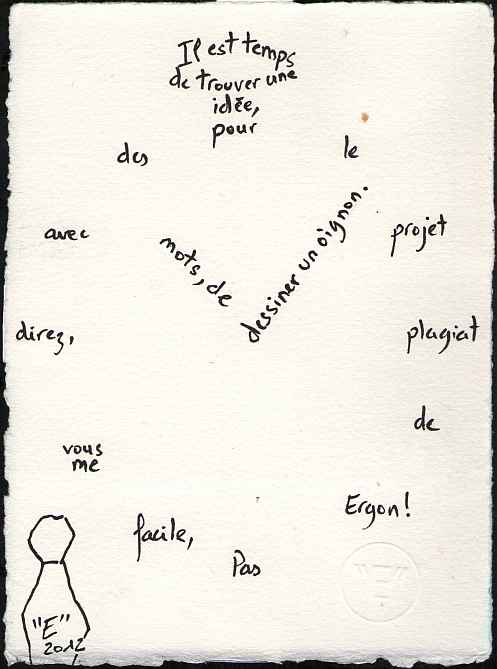 Il est temps
de trouver une
idée,
pour
le
projet
plagiat
de
Ergon!
Pas
facile,
vous
me
direz,
avec
des
mots, de
dessiner un oignon.
"E"
2012
"E"